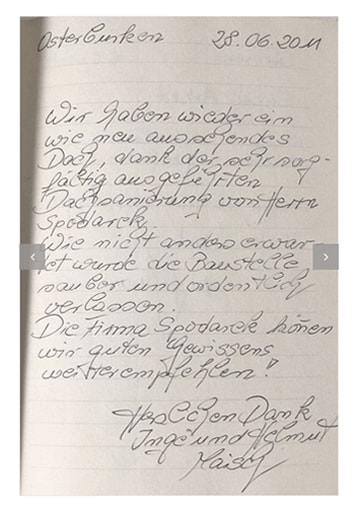 Osterburken 28.06.2011
Wir haben wieder ein
wie neu aussehendes
Dach, dank der sehr sorg-
fältig ausgeführten
Dachsanierung von Herrn
Spodarek.
Wie nicht anders erwar
tet wurde die Baustelle
sauber und ordentlich
verlassen.
Die Firma Spodarek können
wir guten Gewissens
weiterempfehlen!
Herzlichen Dank
Inge und Helmut